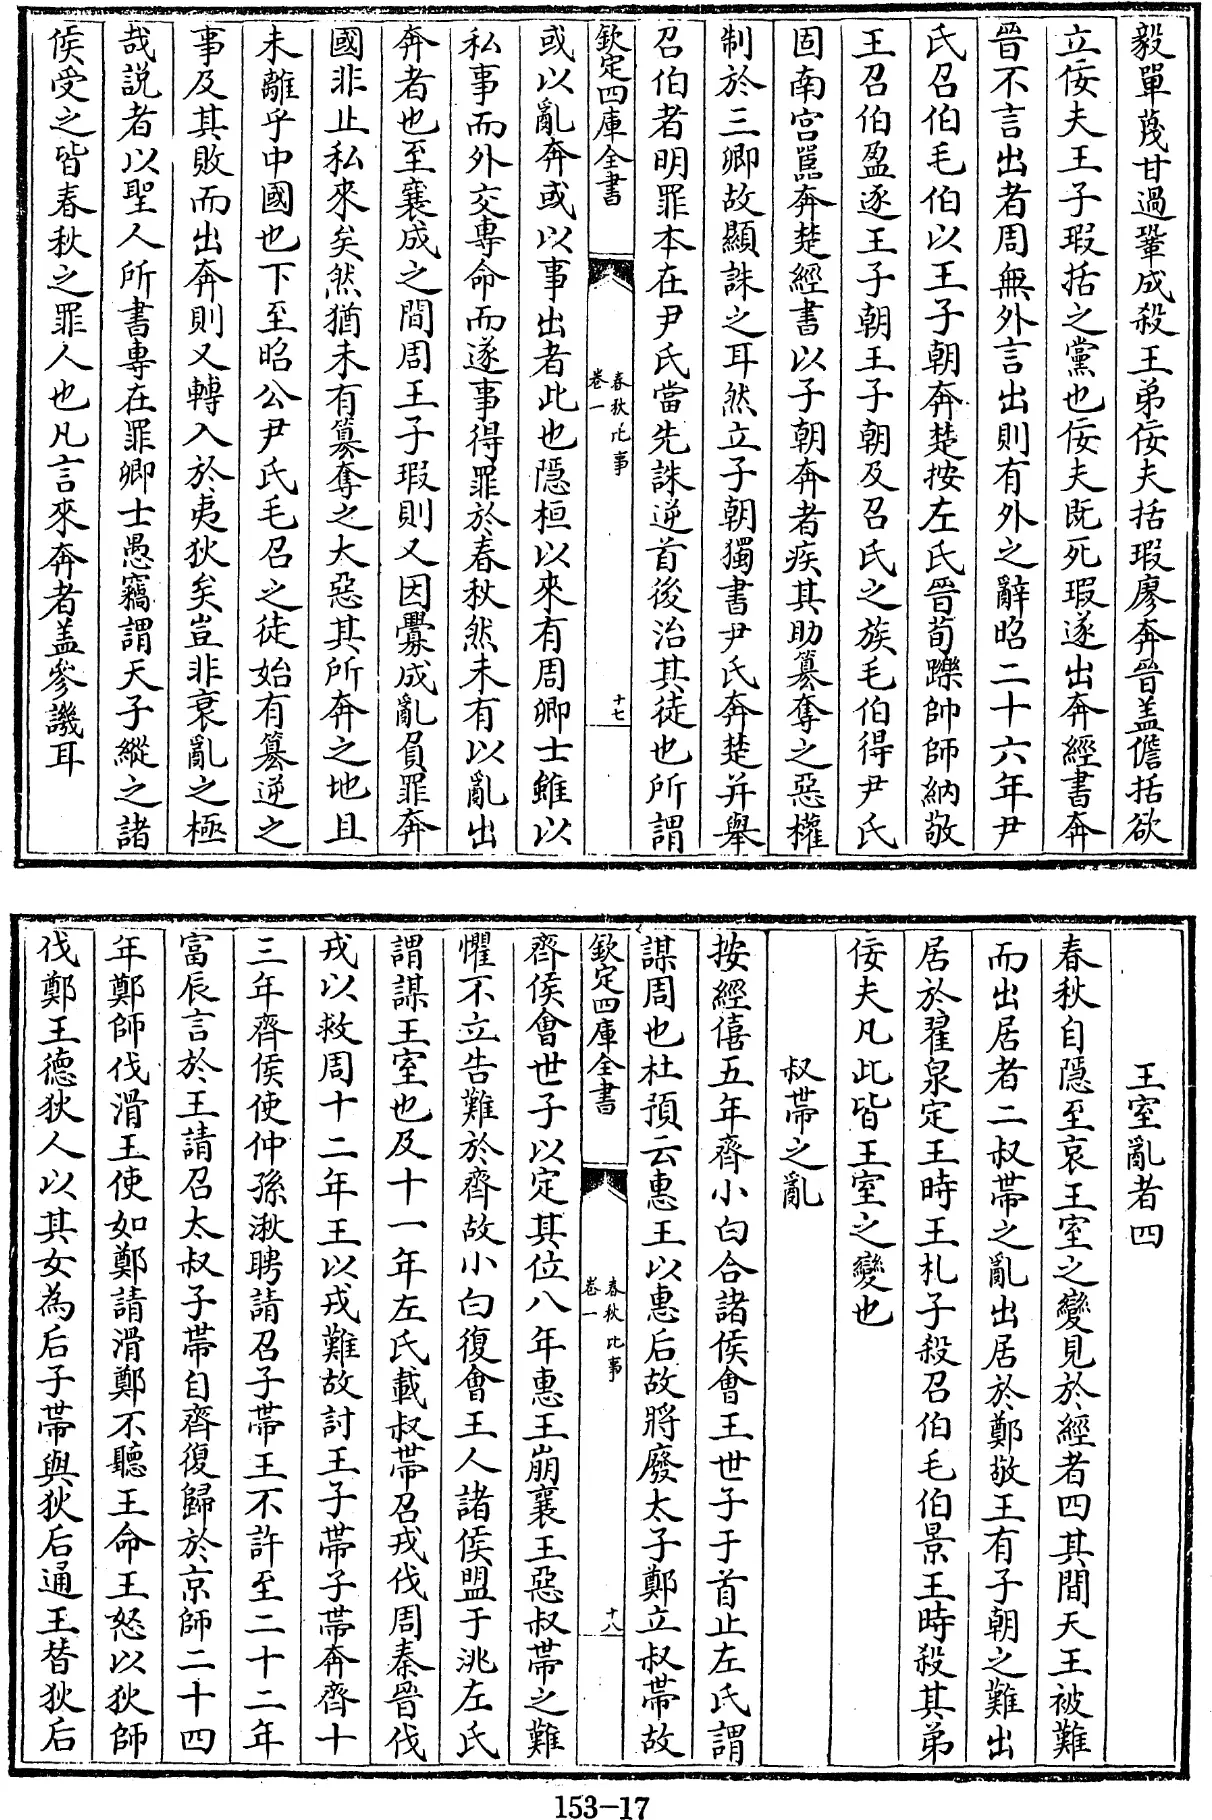 毅單蔑甘過鞏成殺王弟佞夫括瑕廖奔晉蓋儋括欲
立佞夫王子瑕括之黨也佞夫既死瑕遂出奔經書奔
晉不言出者周無外言出則有外之辭昭二十六年尹
氏召伯毛伯以王子朝奔楚按左氏晉荀躒帥師納敬
王召伯盈逐王子朝王子朝及召氏之族毛伯得尹氏
固南宮嚚奔楚經書以子朝奔者疾其助篡奪之惡權
制於三卿故顯誅之耳然立子朝獨書尹氏奔楚并舉
召伯者明罪本在尹氏當先誅逆首後治其徒也所謂
欽定四庫全書
春秋比事
卷一
十七
或以亂奔或以事出者此也隱桓以來有周卿士雖以
私事而外交專命而遂事得罪於春秋然未有以亂出
奔者也至襄成之間周王子瑕則又因釁成亂負罪奔
國非止私來矣然猶未有篡奪之大惡其所奔之地且
未離乎中國也下至昭公尹氏毛召之徒始有篡逆之
事及其敗而出奔則又轉入於夷狄矣豈非衰亂之極
哉說者以聖人所書專在罪卿士愚竊謂天子縱之諸
侯受之皆春秋之罪人也凡言來奔者盖參譏耳
王室亂者四
春秋自隱至哀王室之變見於經者四其間天王被難
而出居者二叔帶之亂出居於鄭敬王有子朝之難出
居於翟泉定王時王札子殺召伯毛伯景王時殺其弟
佞夫凡此皆王室之變也
叔帶之亂
按經僖五年齊小白合諸侯會王世子于首止左氏謂
謀周也杜預云惠王以惠后故將廢太子鄭立叔帶故
欽定四庫全書
春秋比事
卷一
十八
齊侯會世子以定其位八年惠王崩襄王惡叔帶之難
懼不立告難於齊故小白復會王人諸侯盟于洮左氏
謂謀王室也及十一年左氏載叔帶召戎伐周秦晉伐
戎以救周十二年王以戎難故討王子帶子帶奔齊十
三年齊侯使仲孫湫聘請召子帶王不許至二十二年
富辰言於王請召太叔子帶自齊復歸於京師二十四
年鄭師伐滑王使如鄭請滑鄭不聽王命王怒以狄師
伐鄭王德狄人以其女為后子帶與狄后通王替狄后
153-17